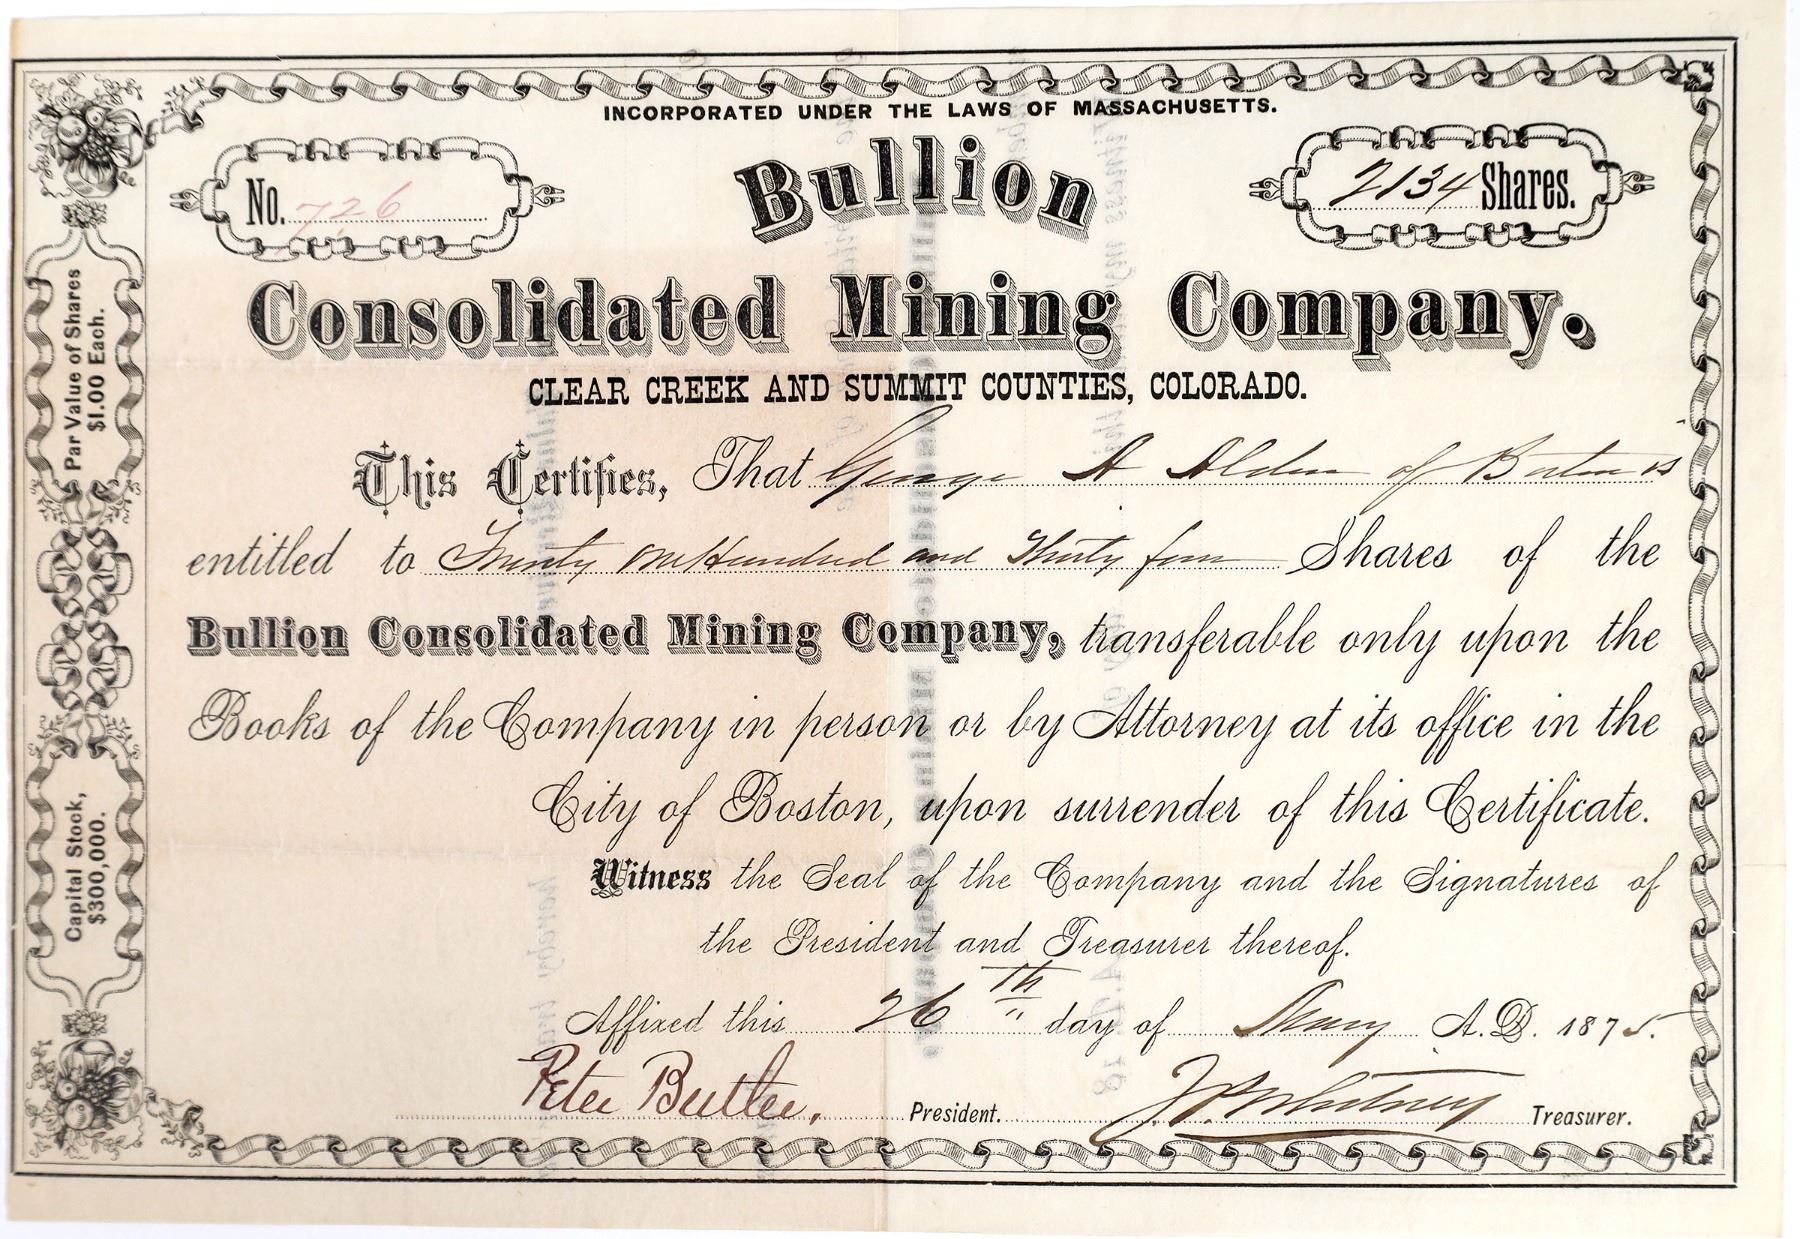 INCORPORATED UNDER THE LAWS OF MASSACHUSETTS.
No. 726
Bullion
2134 Shares.
Consolidated Mining Company.
CLEAR CREEK AND SUMMIT COUNTIES, COLORADO.
Par Value of Shares
$1.00 Each.
Capital Stock,
$300,000.
This Certifies, That George A Alden of Boston is
entitled to Twenty one Hundred and Thirty four Shares of the
Bullion Consolidated Mining Company, transferable only upon the
Books of the Company in person or by Attorney at its office in the
City of Boston, upon surrender of this Certificate.
Witness the Seal of the Company and the Signatures of
the President and Treasurer thereof.
Affixed this 26th day of May A.D. 1875.
Peter Butler, President. J. P. Whitney Treasurer.